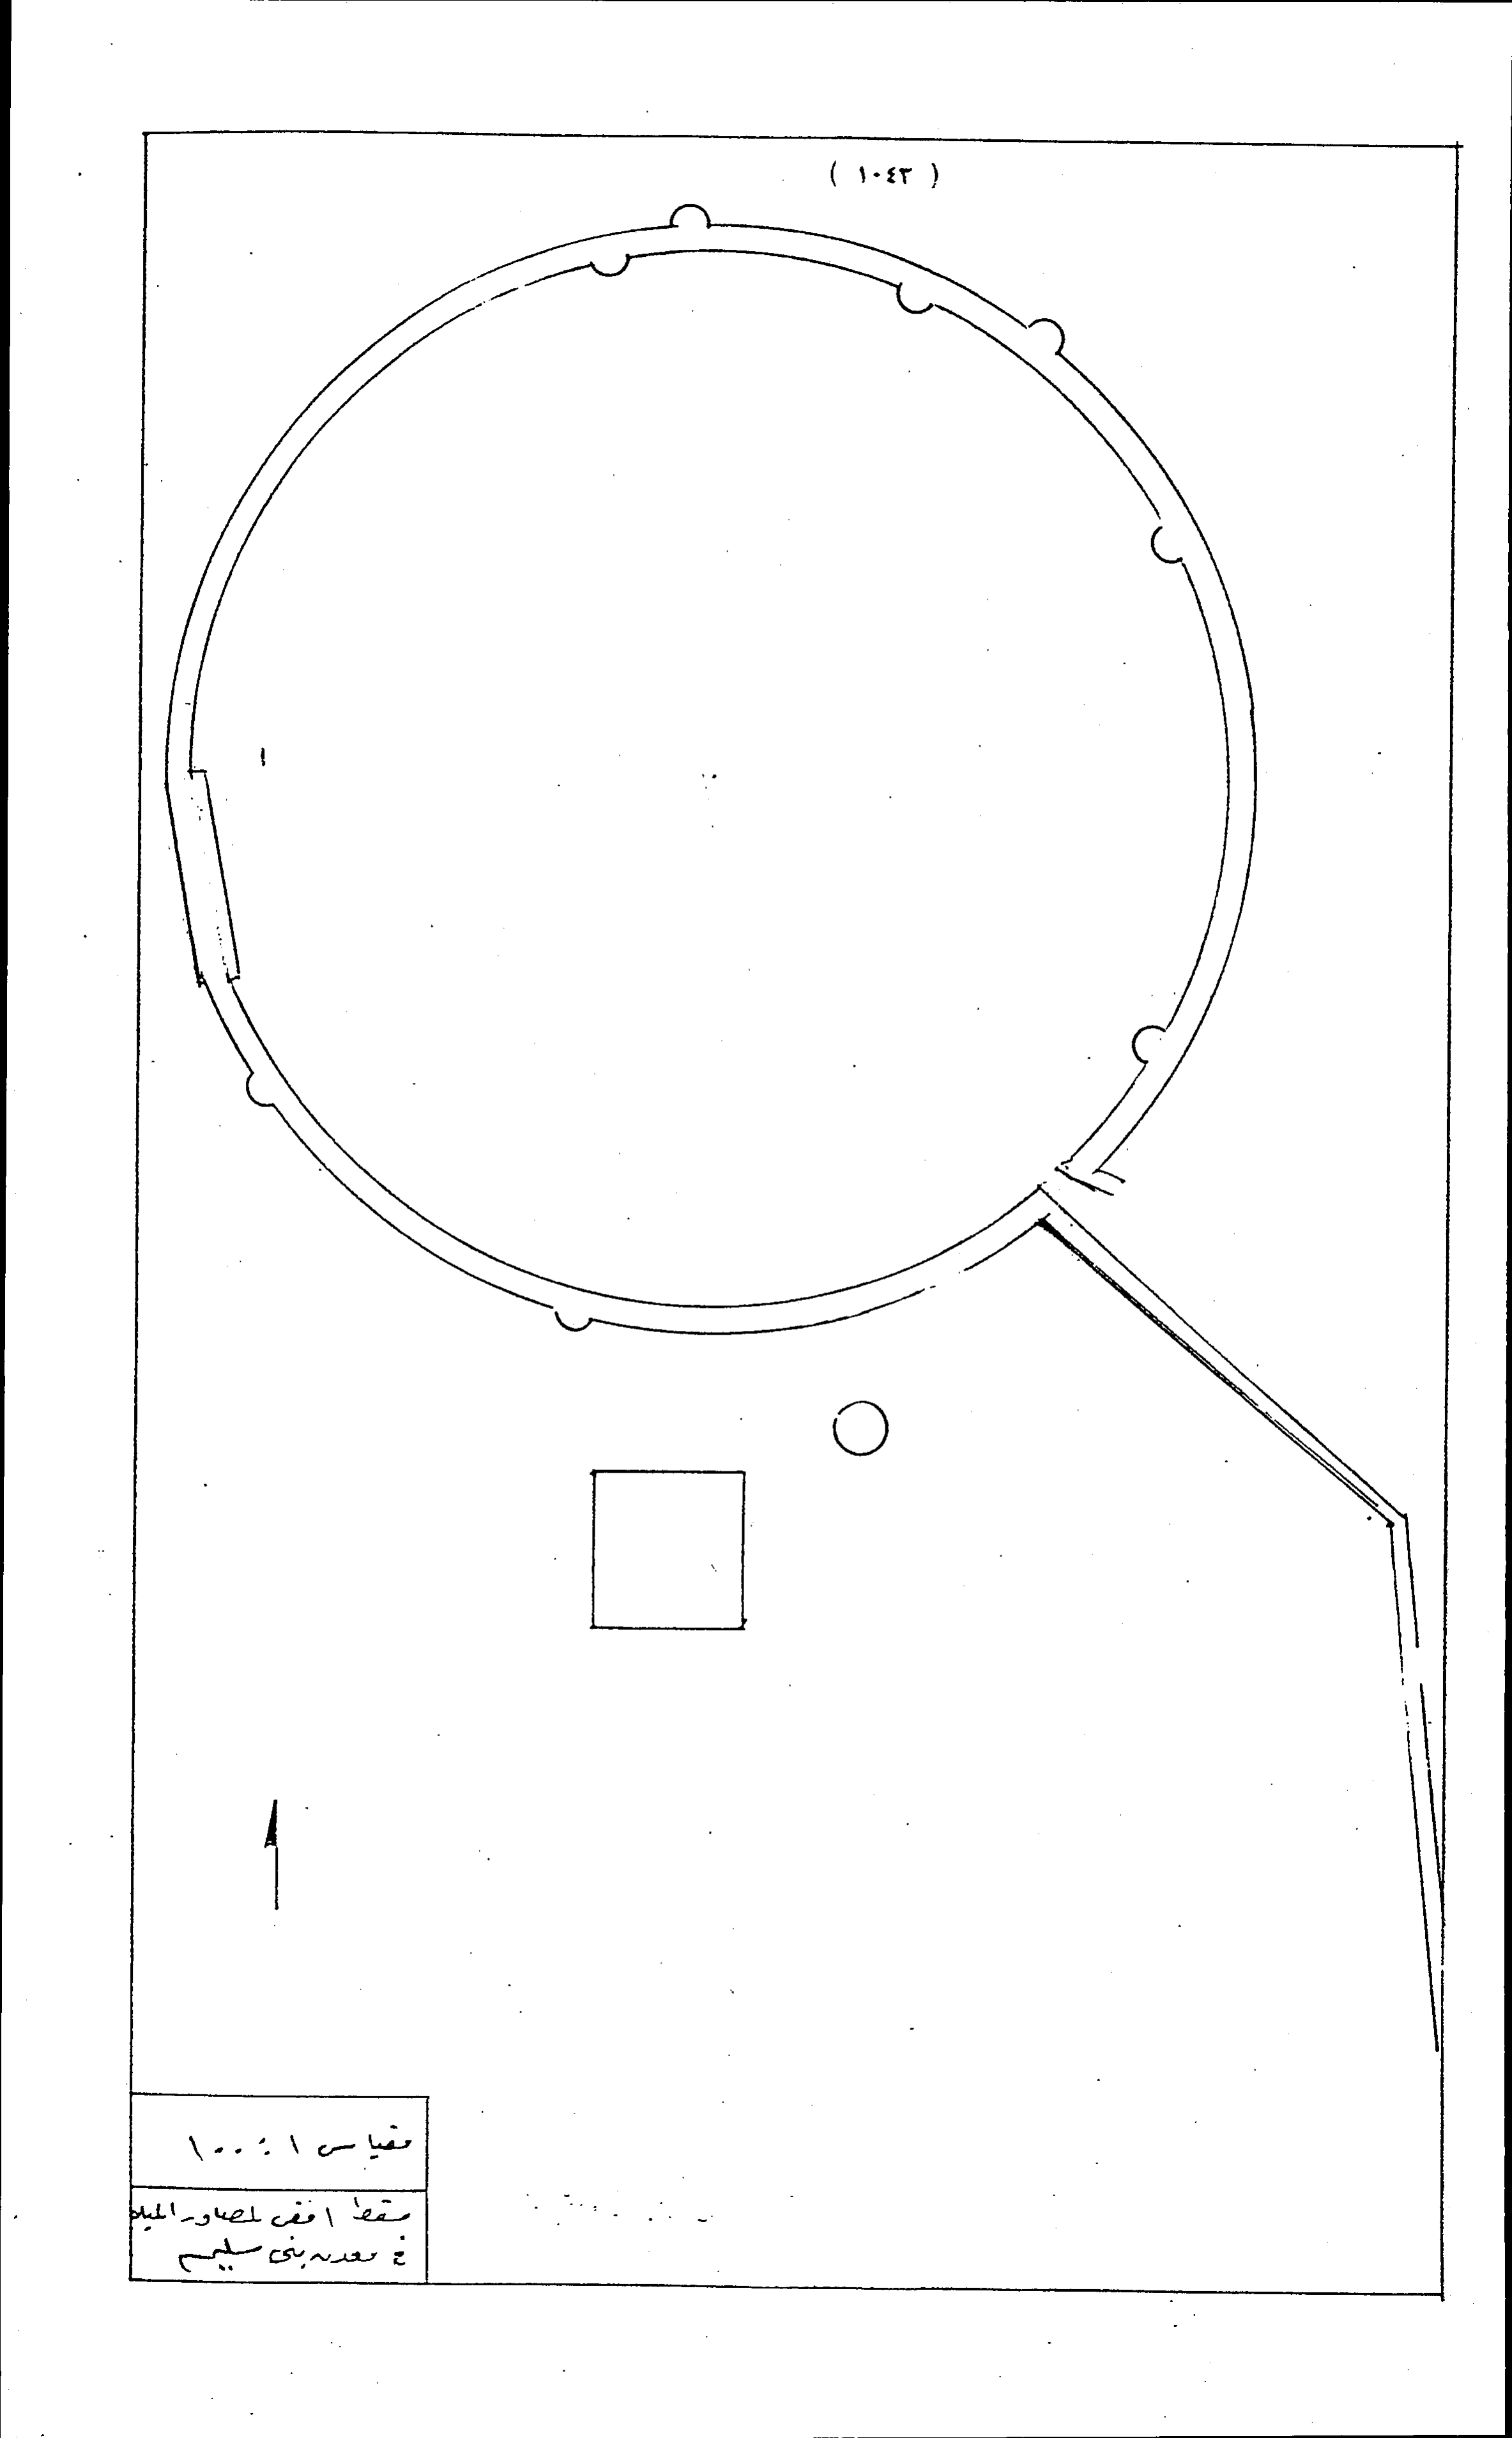 ( ١٠٤٣ )
١
مقياس ١ : ١٠٠
مسقط افقي لمصادر المياه
في معدن بني سليم